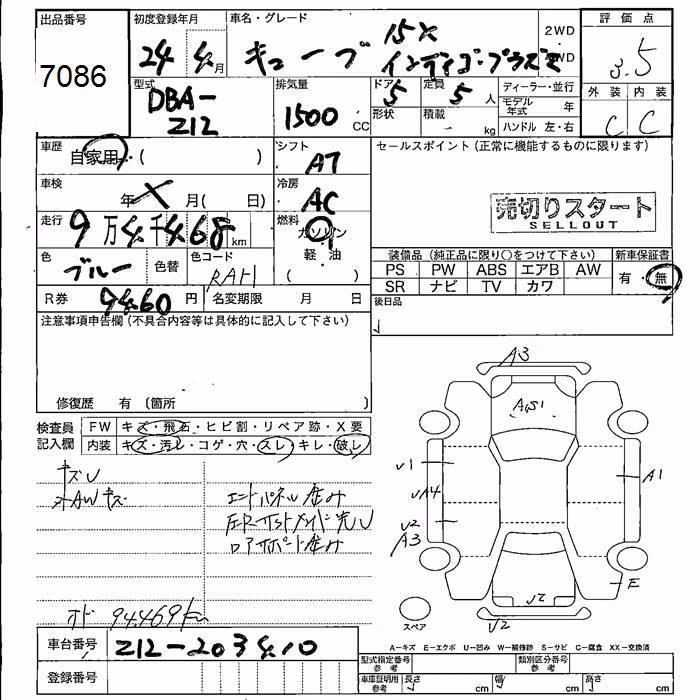 出品番号 初度登録年月 車名・グレード 評価点
7086 24年4月 キューブ 15X 2WD
インディゴ・プラズマ 4WD 3.5
型式 排気量 ドア 定員 ディーラー・並行 外装 内装
DBA- 1500 CC 5 5人 モデル年式 年 C C
Z12 形状 積載 kg ハンドル 左・右
車歴 自家用・( ) シフト AT セールスポイント (正常に機能するものに限ります)
車検 年 月( 日) 冷房 AC
売切りスタート
SELLOUT
走行 9万4千468km 燃料 ガソリン
軽油
( )
装備品 (純正品に限り○をつけて下さい) 新車保証書
色 ブルー 色替 色コード RAH
PS PW ABS エアB AW 有・無
SR ナビ TV カワ
R券 9460円 名変期限 月 日 後日品
注意事項申告欄 (不具合内容等は具体的に記入して下さい)
修復歴 有 (箇所 )
検査員記入欄 FW キズ・飛石・ヒビ割・リペア跡・X要
内装 キズ・汚レ・コゲ・穴・スレ・キレ・破レ
キズU
AWキズ
エンドパネル歪み
ロアサポート歪み
オド 94.469km
A3
A51
U1
UA4
U2
A3
A1
E
U2
U2
スペア
車台番号 Z12-203410
登録番号
A-キズ E-エクボ U-凹み W-補修跡 S-サビ C-腐食 XX-交換済
型式指定番号 参考 類別区分番号 参考
車庫証明用 参考 長さ cm 幅 cm 高さ cm